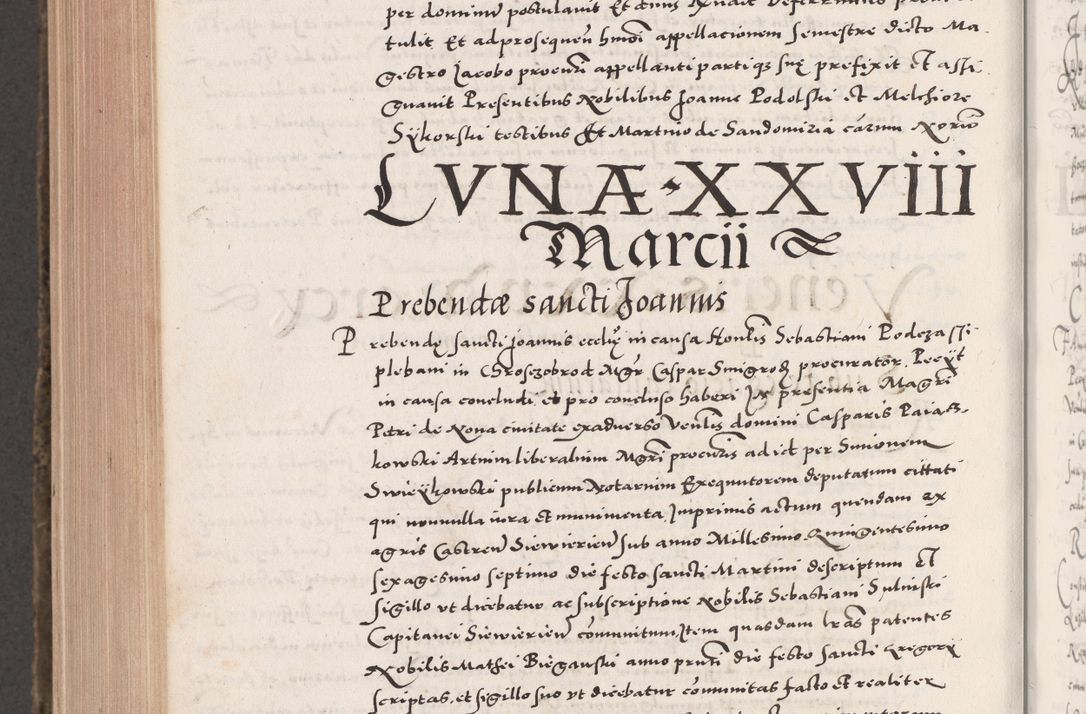 per dominum postulavit Et
tulit Et ad prosequen hmoi appellacionem semestre dicto Ma-
gestro Jacobo procuri appellanti partiqz suę prefixit Et assi-
gnavit Presentibus Nobilibus Joanne Podolski et Melchiore
Sykorski testibus Et Martino de Sandomiria carmn Norio
LVNÆ XXVIII
Marcii
Prebendæ sancti Joannis
Prebendę sancti Joannis eccliȩ in causa Honlis Sebastiani Podeza ssi
plebani in Chrosczobrod Mgr Caspar Smigrod procurator Pecyt
in causa concludi et pro concluso haberi In presentia Magri
Petri de Nova civitate exadverso Venlis domini Casparis Paiacz-
kowski Artium liberalium Mgri procuris ad id per Simonem
Swieykowski publicum Notarium Exequutorem deputatum cittati
qui nonnulla iura et munimenta Imprimis actum quendam ex
agris Castren Siewierien sub anno Millesimo Quingentesimo
sexagesimo septimo die festo sancti Martini descriptum Et
sigillo ut dicebatur ac subscriptione Nobilis Sebastiani Sulniski
Capitanei Siewierien communitum Item quasdam lras patentes
Nobilis Mathei Bieganski anno prnti die festo sancti Gregorii
scriptas, et sigillo suo ut dicebatur communitas facto et realiter